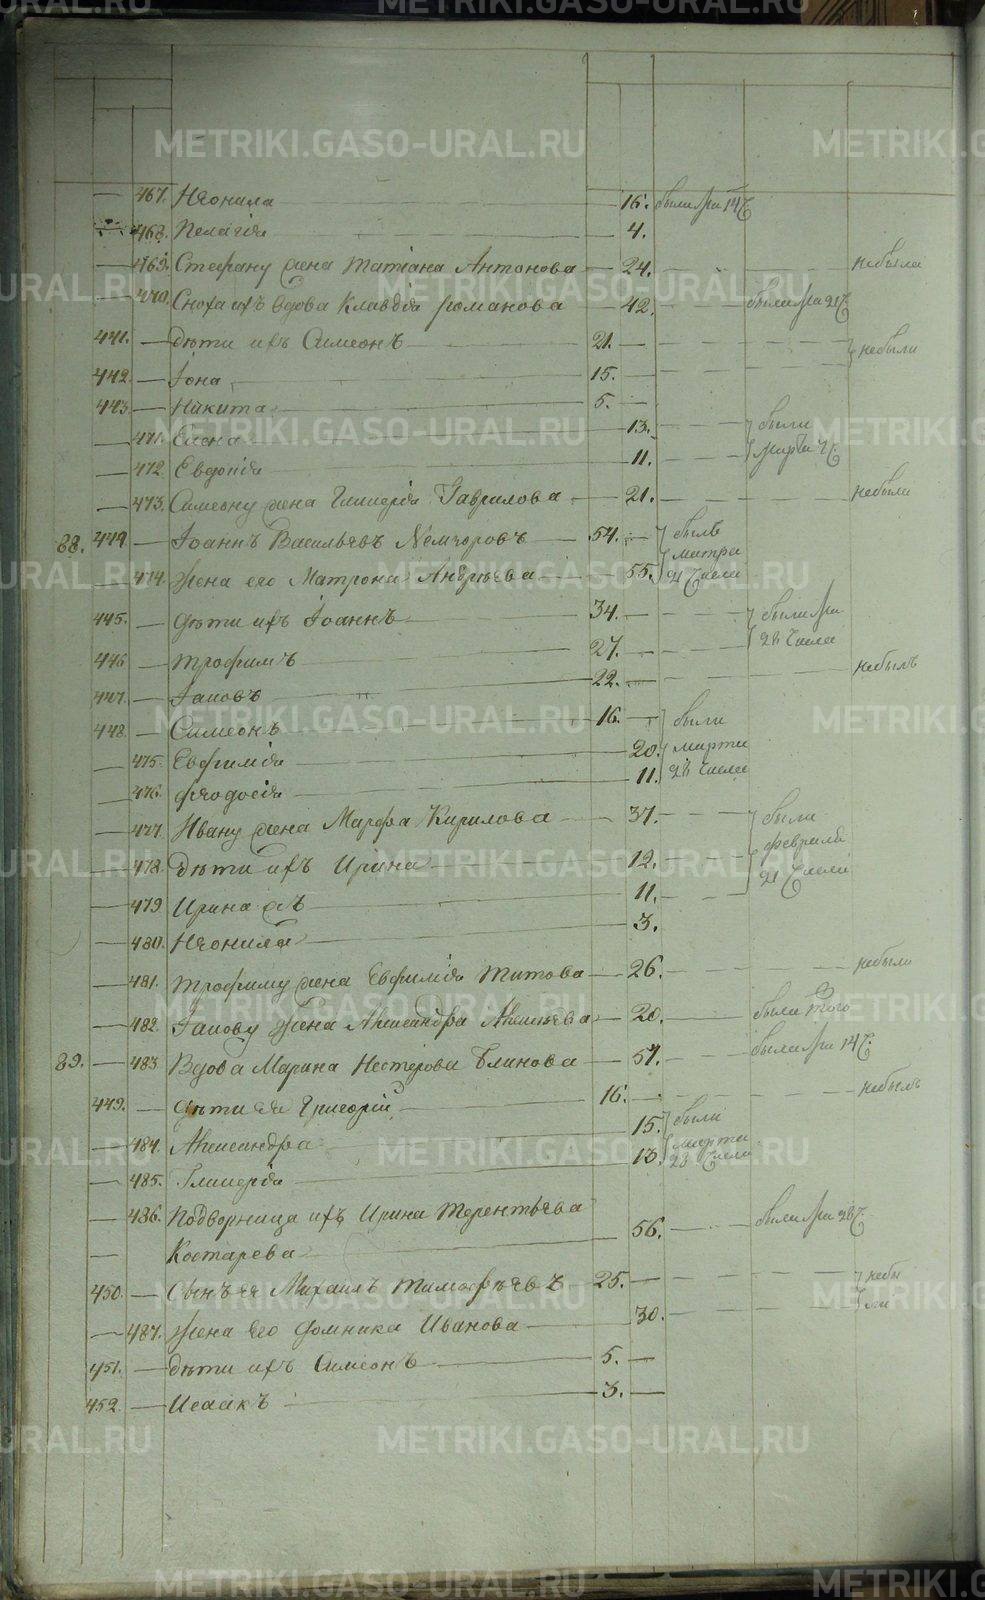 467. Неонила 16. были Мар 14 Ч.
468. Пелагія 4.
469. Стефану жена Татіана Антонова 24. небыла
470. Сноха ихъ вдова Клавдія Романова 42. были Мар 21 Ч.
441. дѣти ихъ Симеонъ 21. небыли
442. Іона 15.
443. Никита 5.
471. Елена 13. были
472. Евдокія 11.
473. Симеону жена Гликерія Гаврилова 21. небыли
88. 444 Іоаннъ Васильевъ 54. былъ
474. Жена его Матрона Андреева 55. марта 21 Числа
445. дѣти ихъ Іоаннъ 34. были Мар
446 Трофимъ 27. 28 Числа
447. Іаковъ 22. небылъ
448. Симеонъ 16. были
475. Евфимія 20. марта
476. Феодосія 11. 28 Числа
477. Ивану жена Марфа Кирилова 37. были
478. дѣти ихъ Ирина 12. февраля
479 Ирина 11. 21 Числа
480. Неонила 3.
481. Трофиму жена Евфимія Титова 26. небыли
482. Іакову Жена Александра Алексѣева 20. были
89. 483 Вдова Марина Нестерова Блинова 57. были Мар 14 Ч.
449. дѣти ея Григорій 16. небылъ
484. Александра 15. были
485. Гликерія 13. марта 23 Числа
486. Подворница ихъ Ирина Терентьева
Костарева 56. были Мар 28 Ч.
450. Сынъ ея Михаилъ Тимофѣевъ 25. небы
487. Жена его Домника Иванова 30. ли
451. дѣти ихъ Симеонъ 5.
452. Исаакъ 3.
METRIKI.GASO-URAL.RU